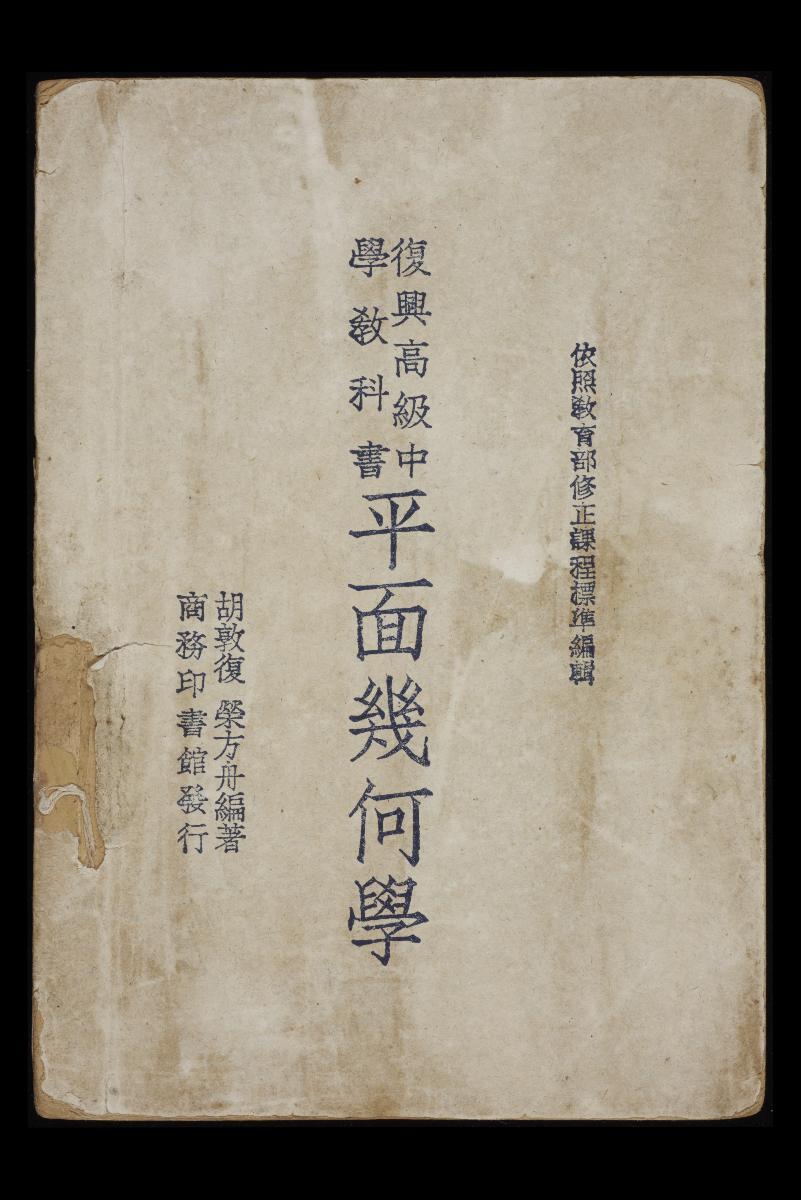 依照教育部修正課程標準編輯
復興高級中
學教科書
平面幾何學
胡敦復 榮方舟編著
商務印書館發行